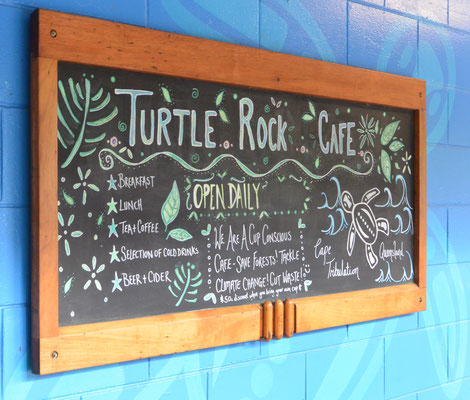 TURTLE ROCK CAFE
OPEN DAILY
BREAKFAST
LUNCH
TEA + COFFEE
SELECTION OF COLD DRINKS
BEER + CIDER
WE ARE A CUP CONSCIOUS
CAFE - SAVE FORESTS! TACKLE
CLIMATE CHANGE! CUT WASTE!
discount when you bring your own cup
Cape
Tribulation
Queensland